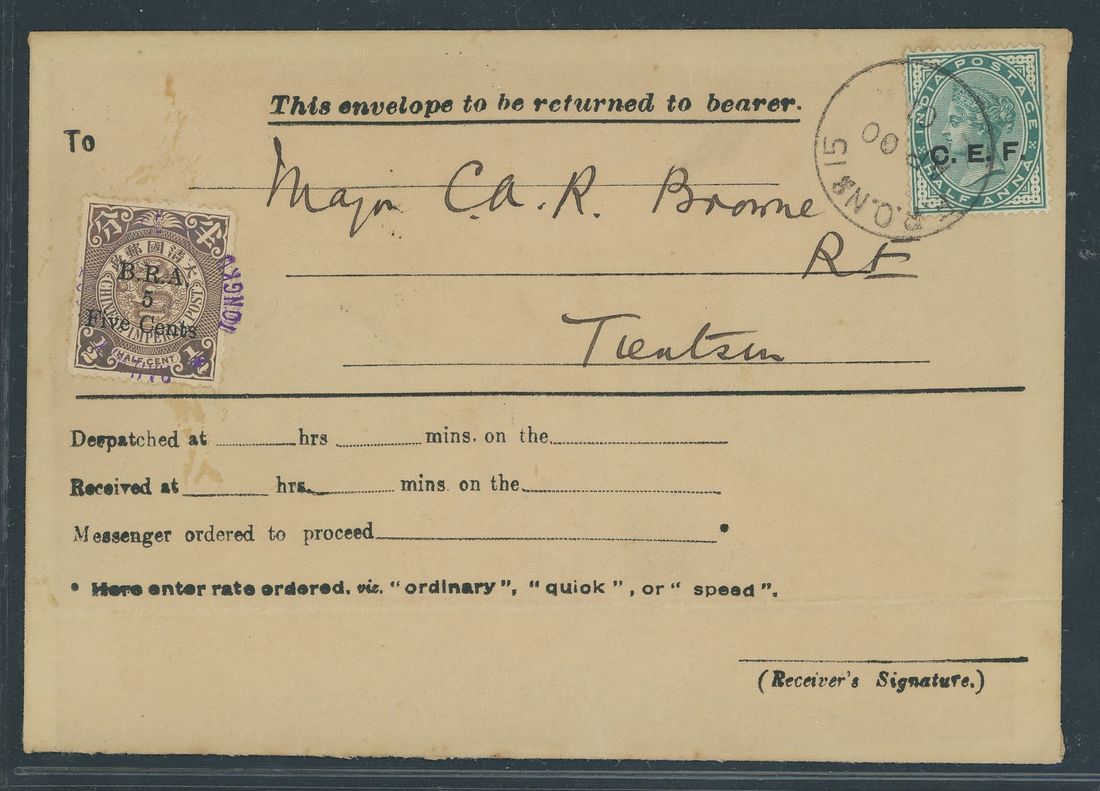 This envelope to be returned to bearer.
To
Major C.A.R. Browne
RE
Tientsin
INDIA POSTAGE
C. E. F.
HALF ANNA
15
大清國郵政
CHINESE IMPERIAL POST
B.R.A.
5
Five Cents
1/2 HALF CENT 1/2
TONGKU
Despatched at hrs mins. on the
Received at hrs. mins. on the
Messenger ordered to proceed *
* Here enter rate ordered. viz. "ordinary", "quick", or "speed".
(Receiver's Signature.)